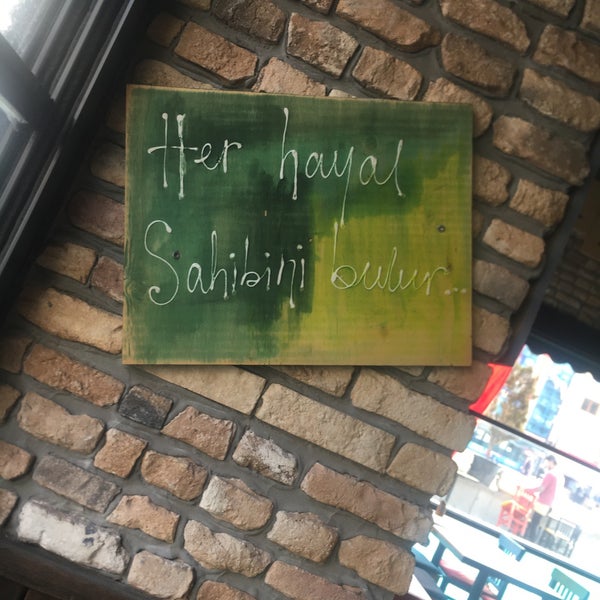 Her hayal
Sahibini bulur...